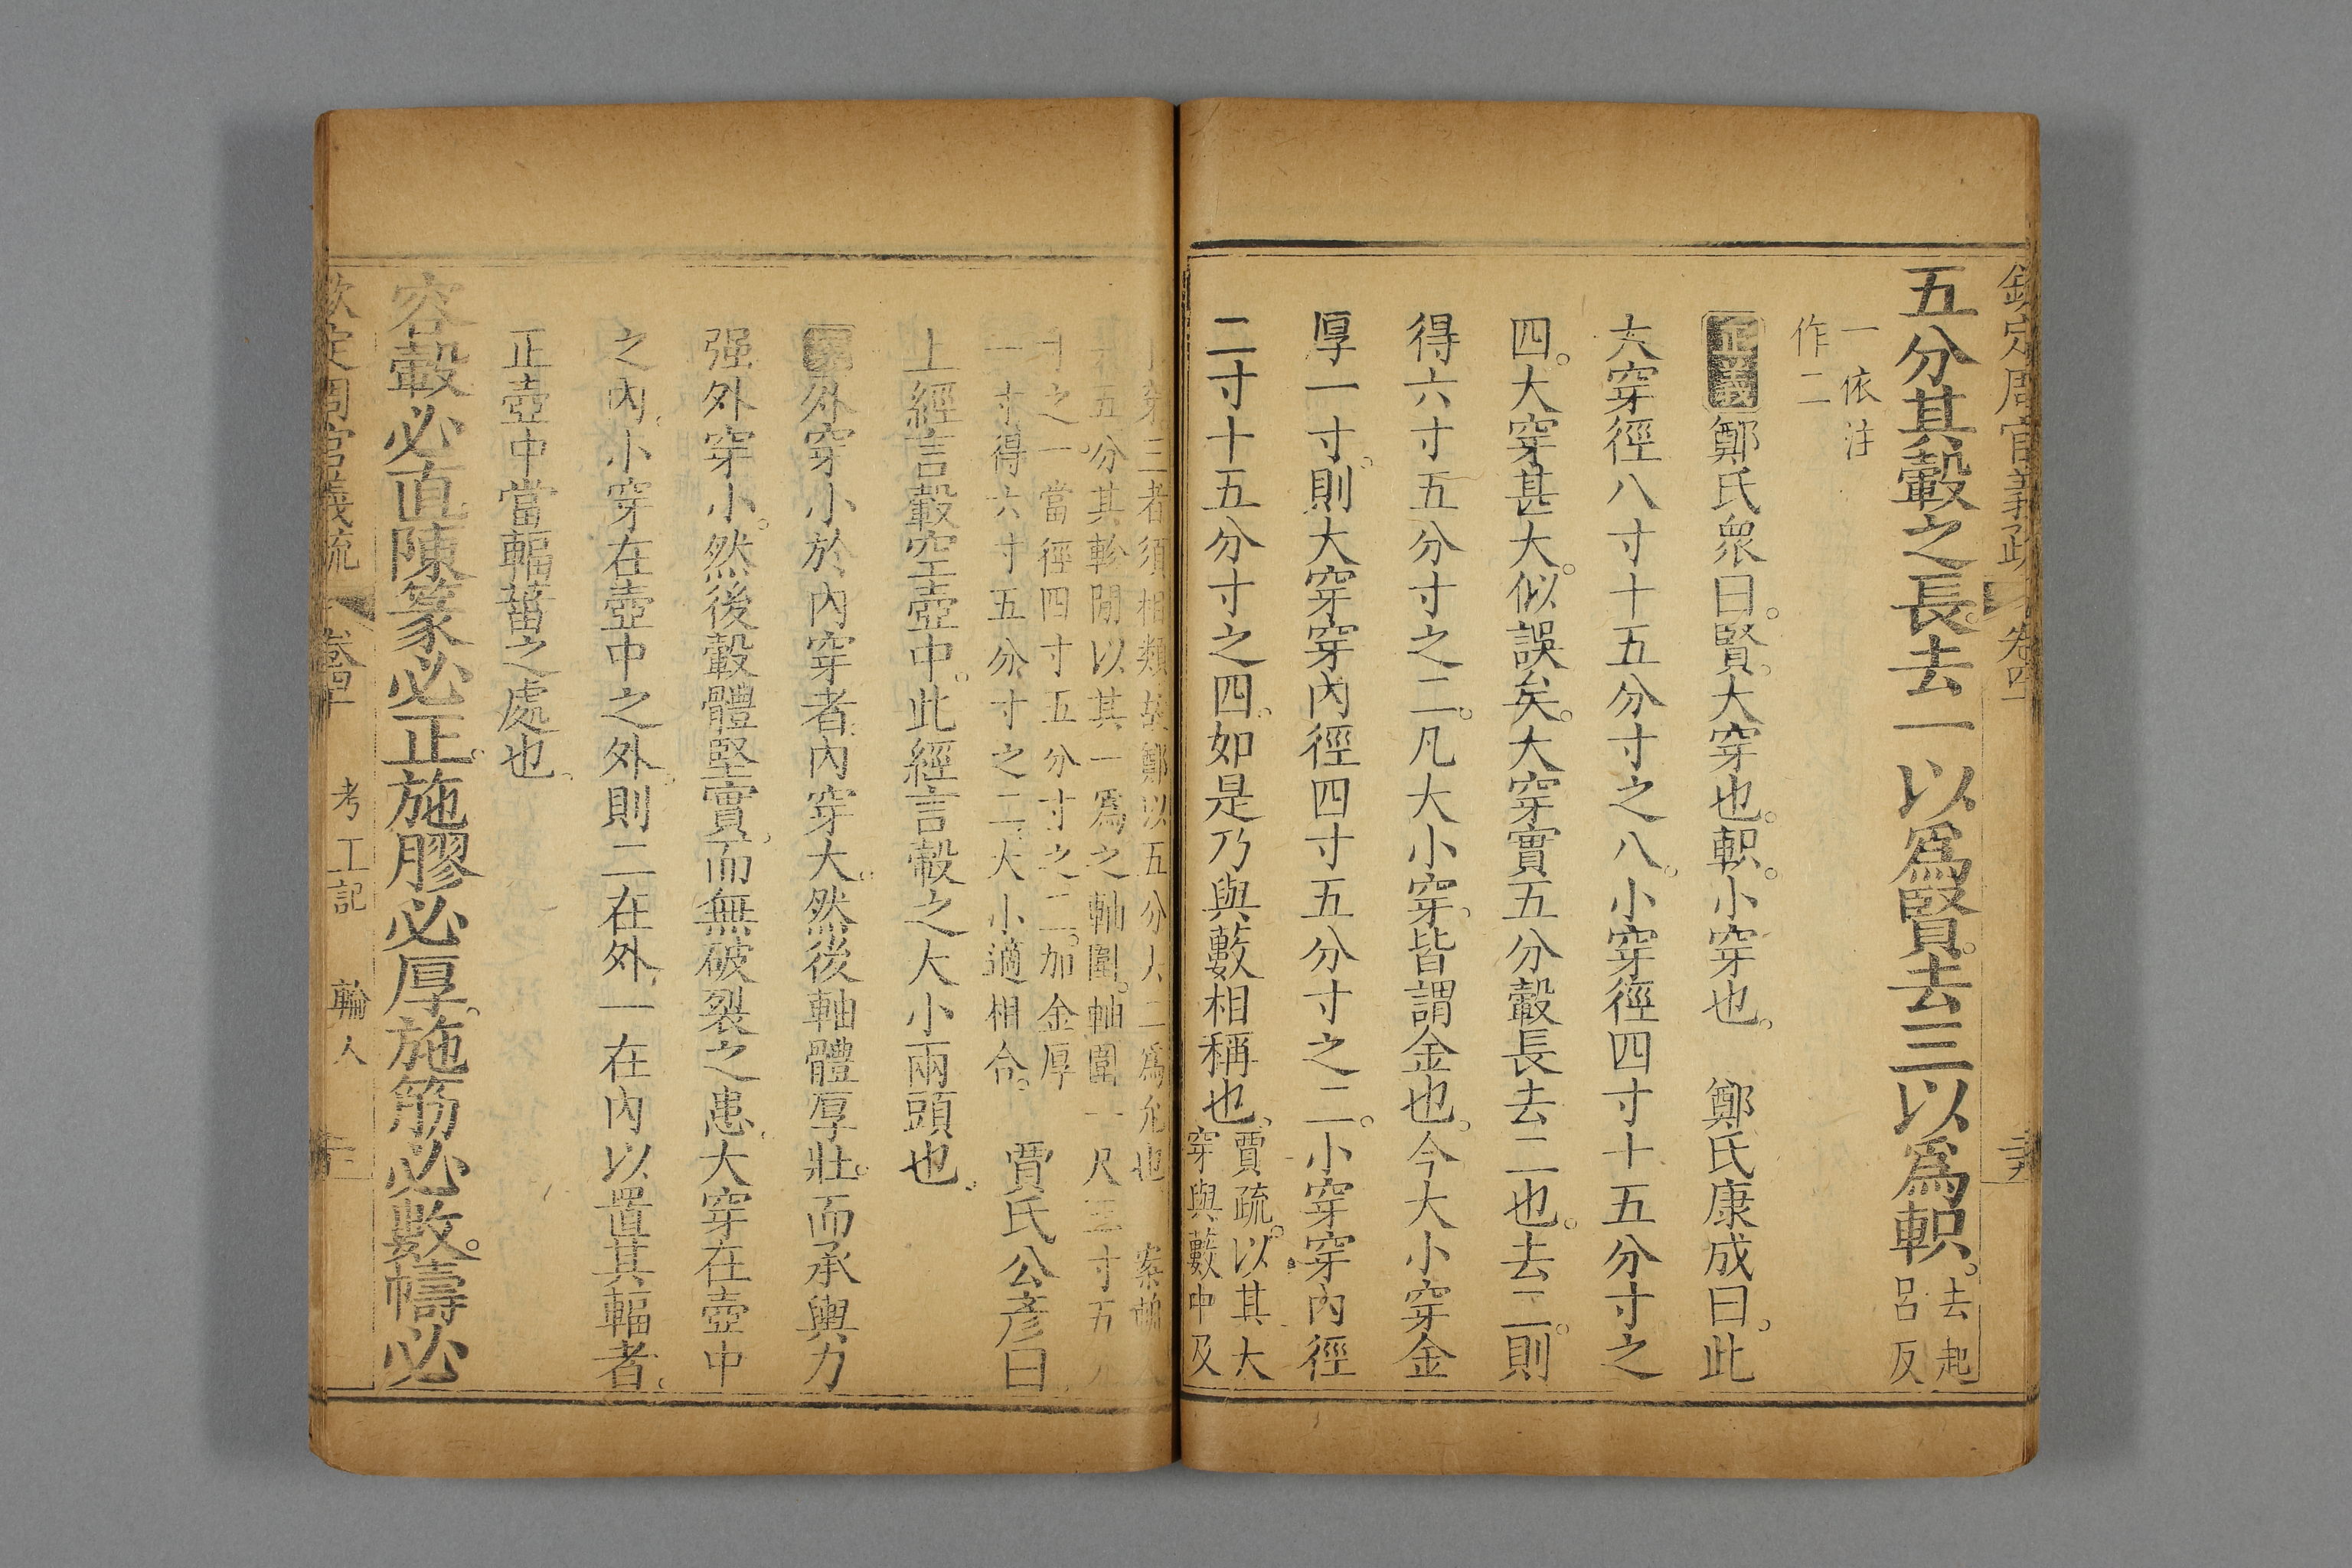 欽定周官義疏 卷四十
五分其轂之長去一以爲賢去三以爲軹。去起
呂反
一依注
作二
正義鄭氏衆曰。賢。大穿也。軹。小穿也。 鄭氏康成曰。此
大穿徑八寸十五分寸之八。小穿徑四寸十五分寸之
四。大穿甚大。似誤矣。大穿實五分轂長去二也。去二。則
得六寸五分寸之二。凡大小穿。皆謂金也。今大小穿金
厚一寸。則大穿穿內徑四寸五分寸之二。小穿穿內徑
二寸十五分寸之四。如是乃與藪相稱也。賈疏。以其大
穿與藪中及
穿三者須相類故鄭以五分去二爲允也 案
五分其軫閒以其一爲之軸圍。軸圍一尺三寸五
寸之一當徑四寸五分寸之二。加金厚
一寸得六寸五分寸之二大小適相合。 賈氏公彥曰
上經言轂空壺中。此經言轂之大小兩頭也。
外穿小於內穿者內穿大。然後軸體厚壯。而承輿力
强外穿小。然後轂體堅實。而無破裂之患。大穿在壺中
之內。小穿在壺中之外。則二在外。一在內以置其輻者。
正壺中當輻菑之處也。
容轂必直陳篆必正。施膠必厚。施筋必數。幬必
欽定周官義疏 卷四十 考工記 輪人